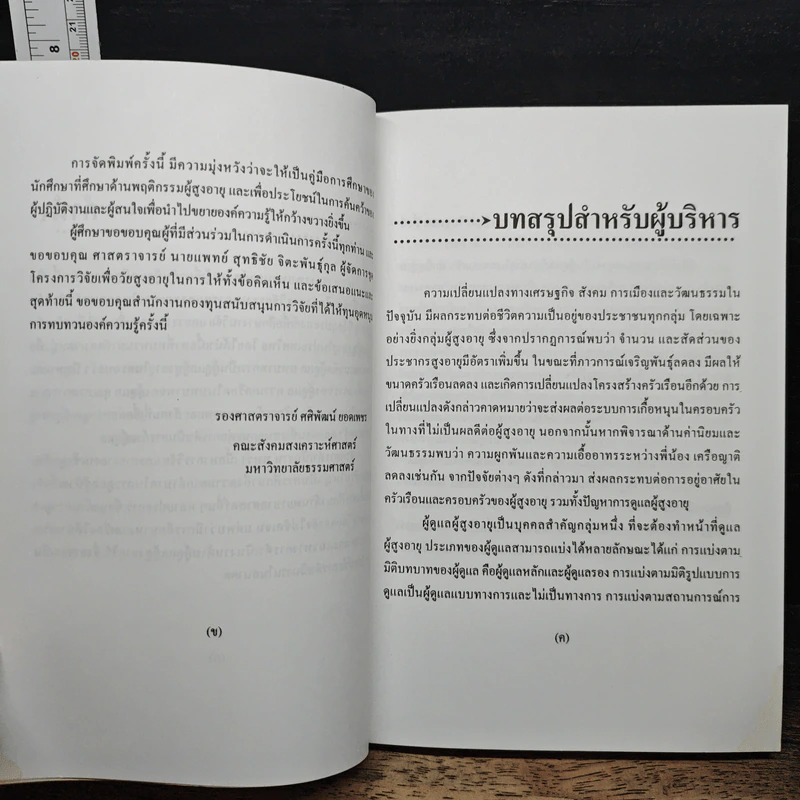 8
20
21
การจัดพิมพ์ครั้งนี้ มีความมุ่งหวังว่าจะให้เป็นคู่มือการศึกษาของ
นักศึกษาที่ศึกษาด้านพฤติกรรมผู้สูงอายุ และเพื่อประโยชน์ในการค้นคว้าของ
ผู้ปฏิบัติงานและผู้สนใจเพื่อนำไปขยายองค์ความรู้ให้กว้างขวางยิ่งขึ้น
ผู้ศึกษาขอขอบคุณผู้ที่มีส่วนร่วมในการดำเนินการครั้งนี้ทุกท่าน และ
ขอขอบคุณ ศาสตราจารย์ นายแพทย์ สุทธิชัย จิตะพันธุ์กุล ผู้จัดการชุด
โครงการวิจัยเพื่อวัยสูงอายุในการให้ทั้งข้อคิดเห็น และข้อเสนอแนะและ
สุดท้ายนี้ ขอขอบคุณสำนักงานกองทุนสนับสนุนการวิจัยที่ได้ให้ทุนอุดหนุน
การทบทวนองค์ความรู้ครั้งนี้
รองศาสตราจารย์ ศศิพัฒน์ ยอดเพชร
คณะสังคมสงเคราะห์ศาสตร์
มหาวิทยาลัยธรรมศาสตร์
(ข)
บทสรุปสำหรับผู้บริหาร
ความเปลี่ยนแปลงทางเศรษฐกิจ สังคม การเมืองและวัฒนธรรมใน
ปัจจุบัน มีผลกระทบต่อชีวิตความเป็นอยู่ของประชาชนทุกกลุ่ม โดยเฉพาะ
อย่างยิ่งกลุ่มผู้สูงอายุ ซึ่งจากปรากฏการณ์พบว่า จำนวน และสัดส่วนของ
ประชากรสูงอายุมีอัตราเพิ่มขึ้น ในขณะที่ภาวการณ์เจริญพันธุ์ลดลง มีผลให้
ขนาดครัวเรือนลดลง และเกิดการเปลี่ยนแปลงโครงสร้างครัวเรือนอีกด้วย การ
เปลี่ยนแปลงดังกล่าวคาดหมายว่าจะส่งผลต่อระบบการเกื้อหนุนในครอบครัว
ในทางที่ไม่เป็นผลดีต่อผู้สูงอายุ นอกจากนั้นหากพิจารณาด้านค่านิยมและ
วัฒนธรรมพบว่า ความผูกพันและความเอื้ออาทรระหว่างพี่น้อง เครือญาติ
ลดลงเช่นกัน จากปัจจัยต่างๆ ดังที่กล่าวมา ส่งผลกระทบต่อการอยู่อาศัยใน
ครัวเรือนและครอบครัวของผู้สูงอายุ รวมทั้งปัญหาการดูแลผู้สูงอายุ
ผู้ดูแลผู้สูงอายุเป็นบุคคลสำคัญกลุ่มหนึ่ง ที่จะต้องทำหน้าที่ดูแล
ผู้สูงอายุ ประเภทของผู้ดูแลสามารถแบ่งได้หลายลักษณะได้แก่ การแบ่งตาม
มิติบทบาทของผู้ดูแล คือผู้ดูแลหลักและผู้ดูแลรอง การแบ่งตามมิติรูปแบบการ
ดูแลเป็นผู้ดูแลแบบทางการและไม่เป็นทางการ การแบ่งตามสถานการณ์การ
(ค)